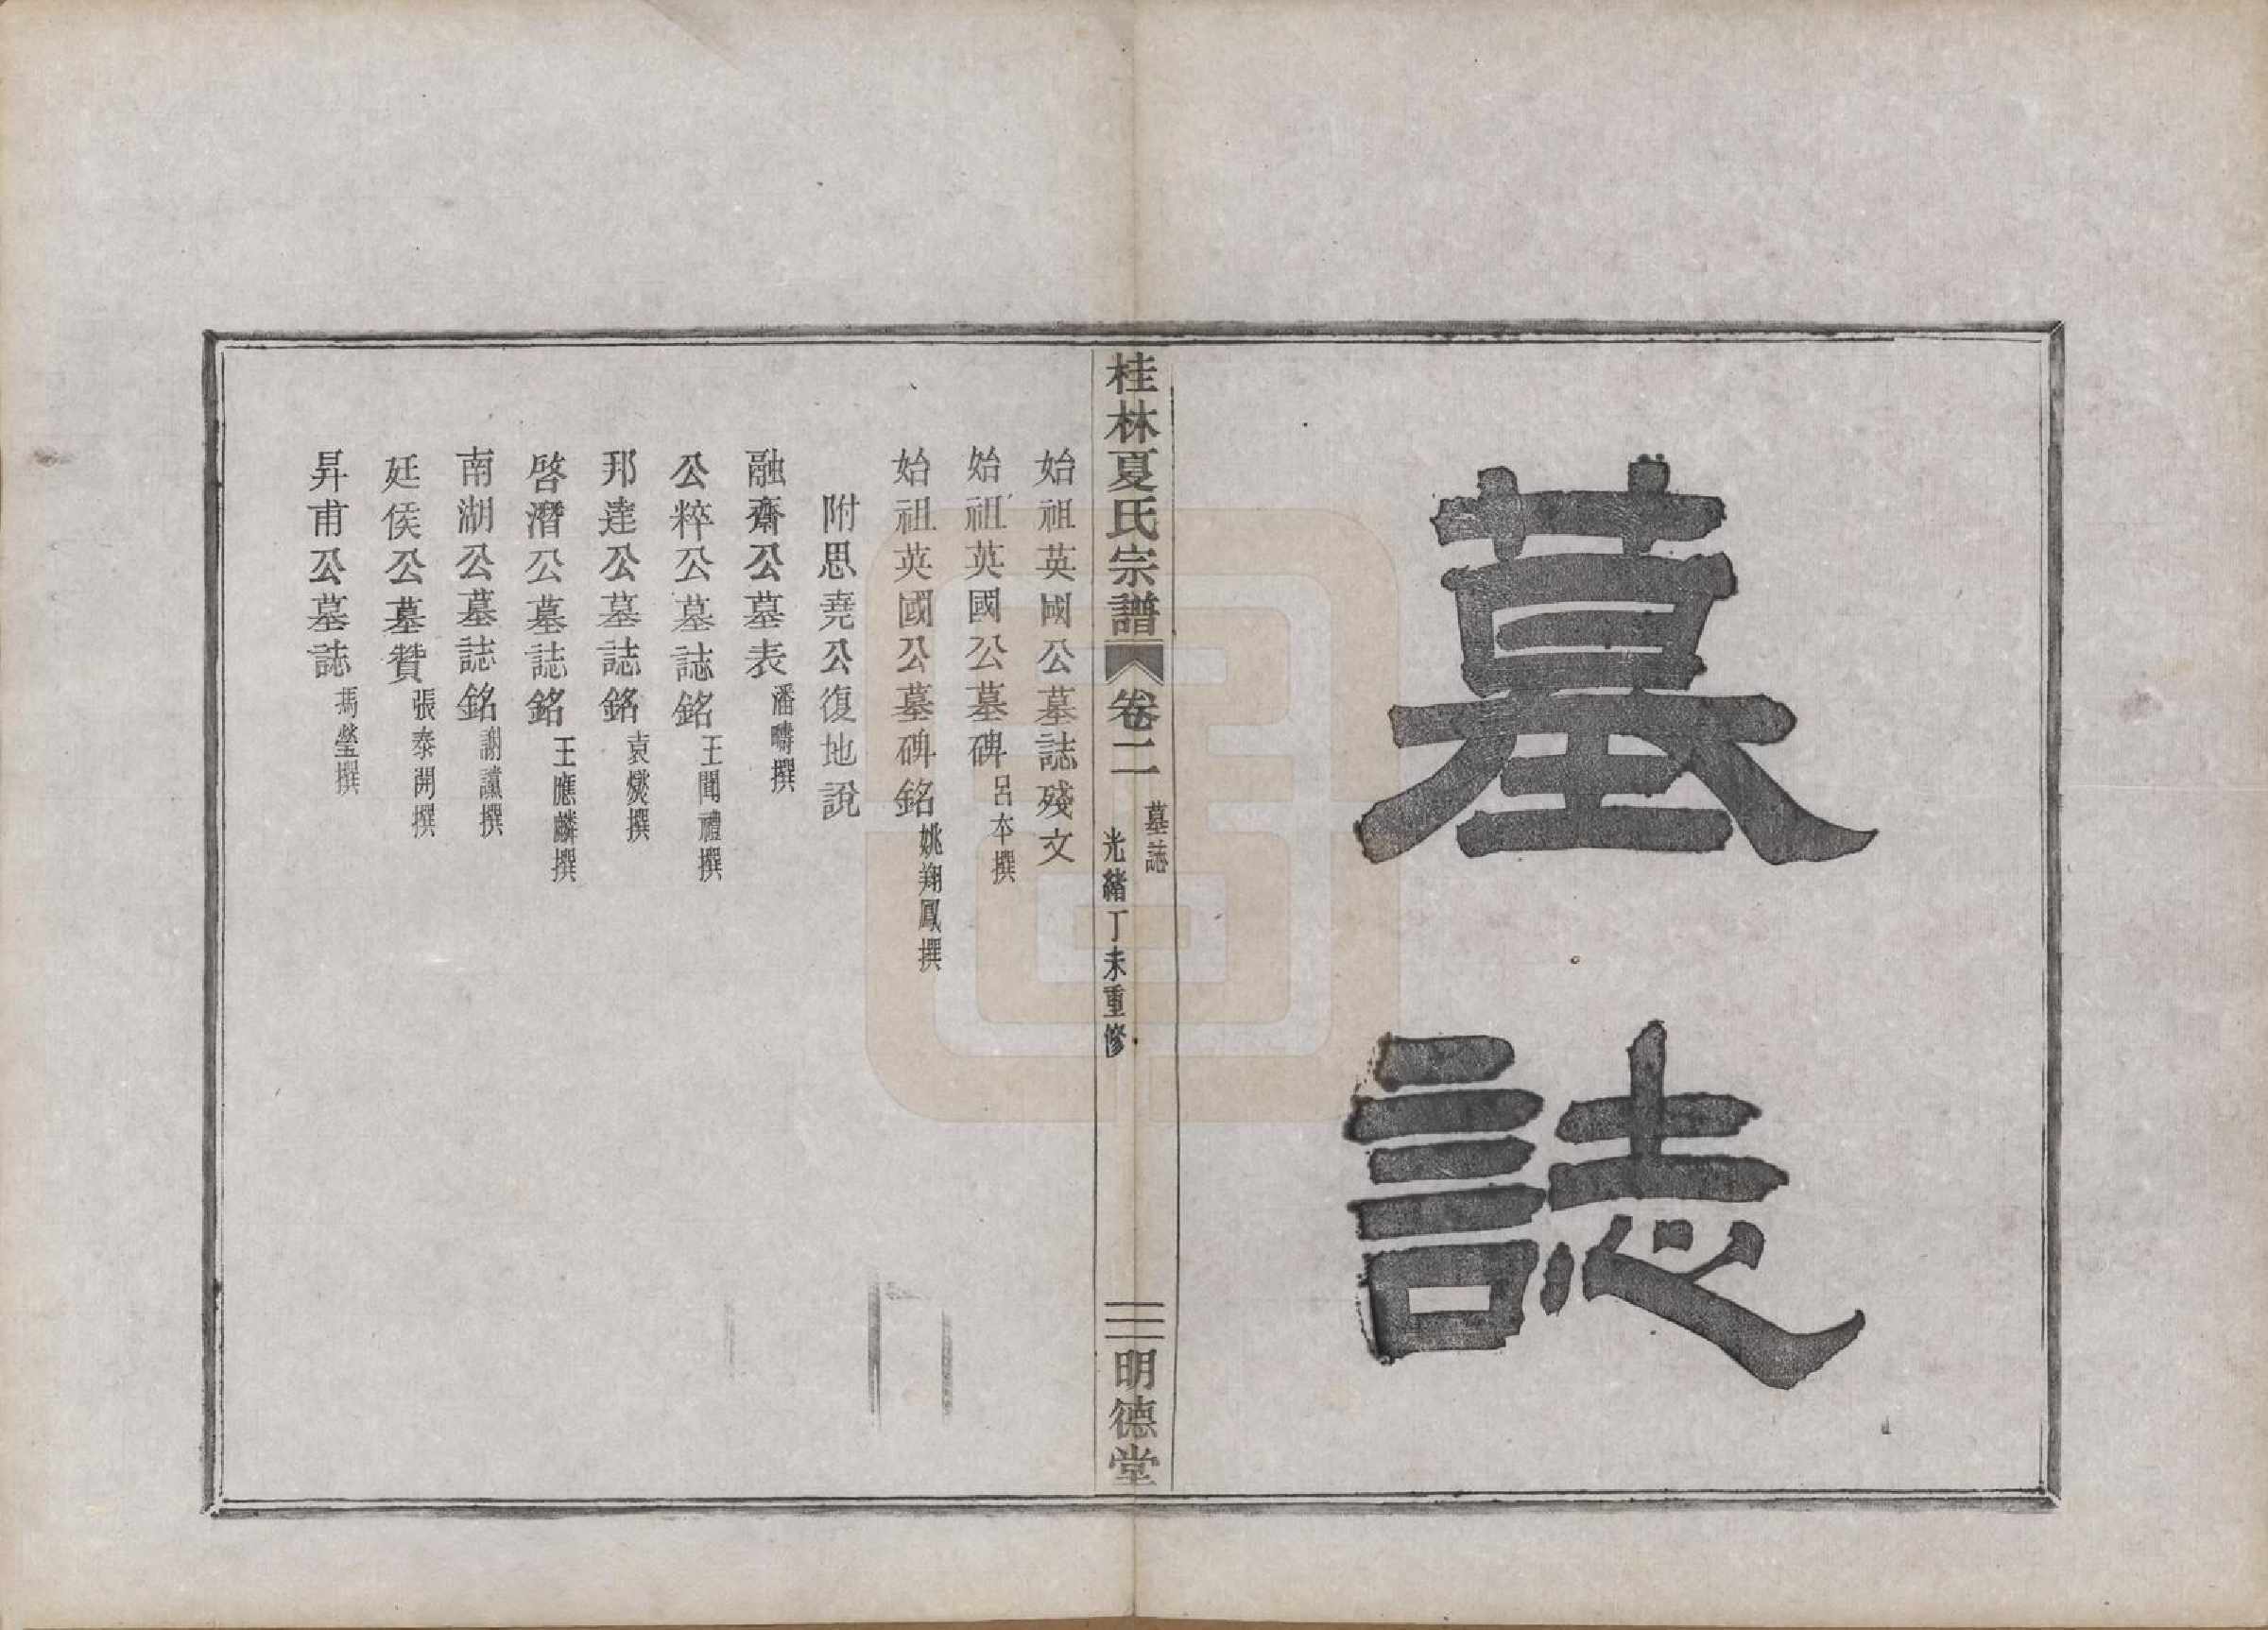 墓誌
桂林夏氏宗譜 卷二 墓誌 光緒丁未重修 明德堂
始祖英國公墓誌殘文
始祖英國公墓碑 呂本撰
始祖英國公墓碑銘 姚翔鳳撰
附思堯公復地說
融齋公墓表 潘疇撰
公粹公墓誌銘 王聞禮撰
邦達公墓誌銘 袁燮撰
啓潛公墓誌銘 王應麟撰
南湖公墓誌銘 謝讜撰
廷侯公墓贊 張泰開撰
昇甫公墓誌 馮瑩撰